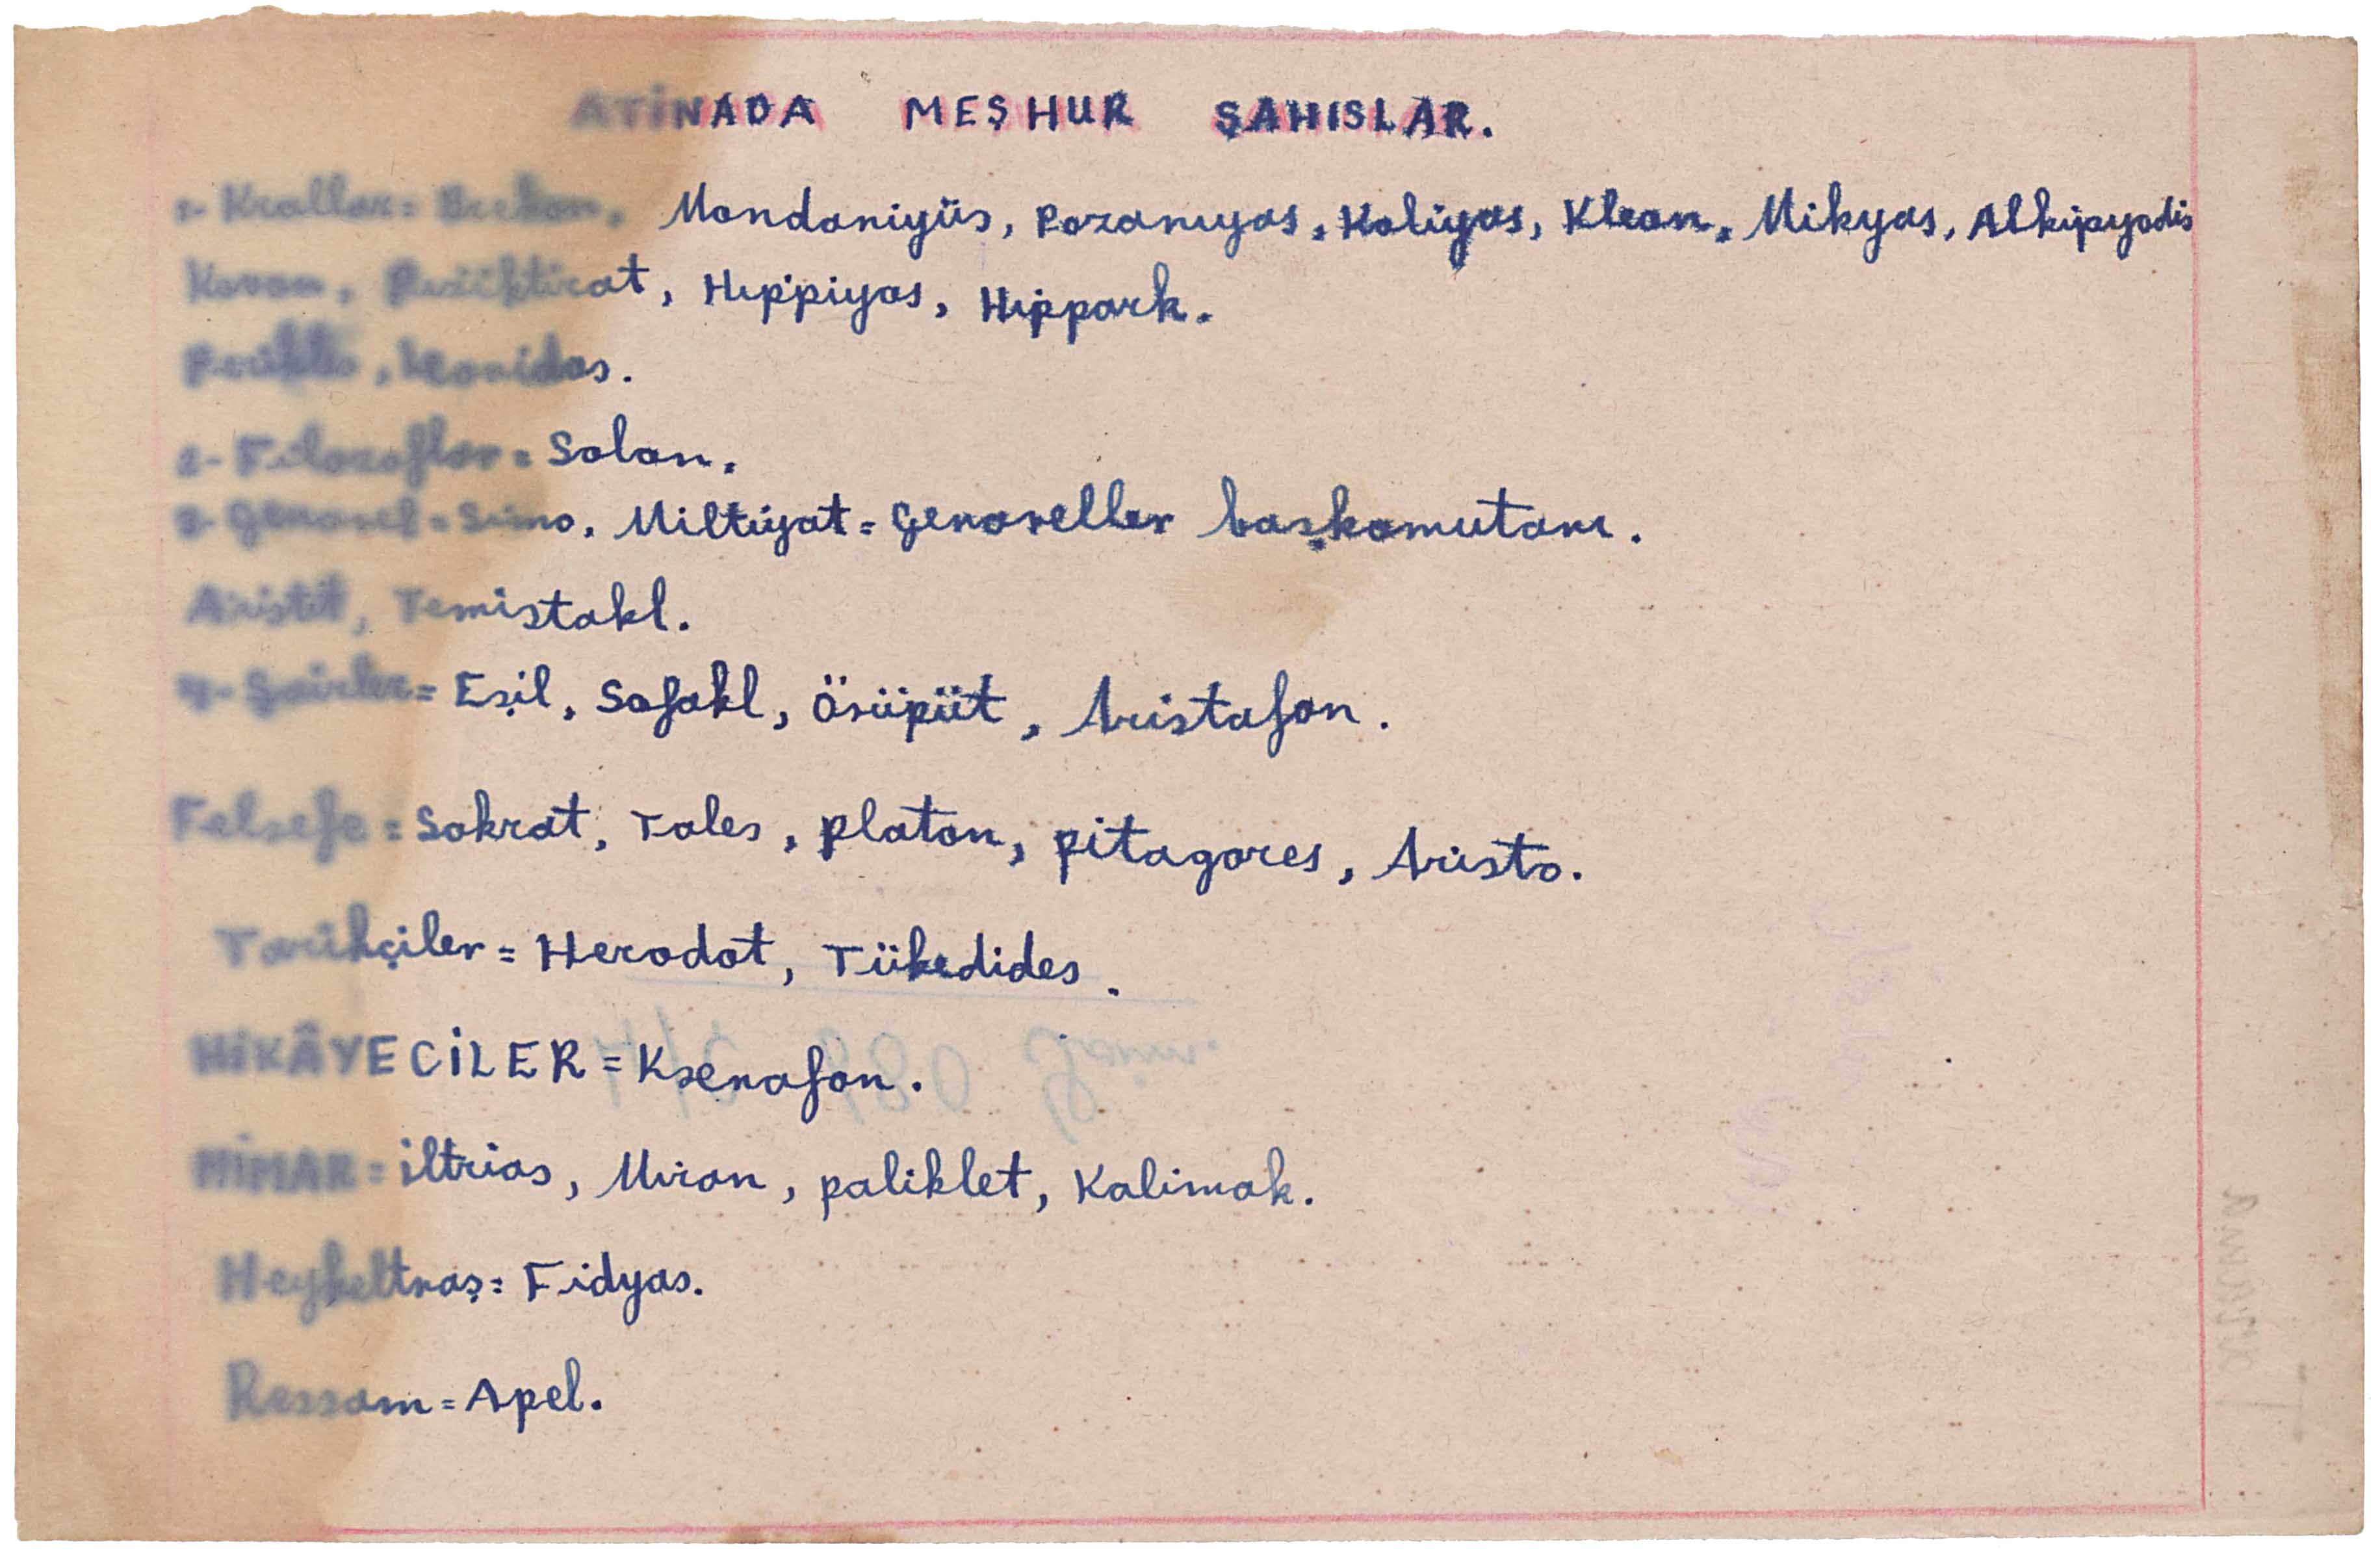 ATİNADA MEŞHUR ŞAHISLAR.
1- Krallar= Mondaniyüs, Pozanıyas, Kaliyas, Kleon, Mikyas, Alkipyadis
Hıppiyas, Hıppark.
Leonidas.
2- Filozoflar= Solon.
3- General= Simo, Miltiyat= Generaller başkomutanı.
Aristit, Temistokl.
4- Şairler= Eşil, Sofokl, Örüpüt, Aristofan.
Felsefe= Sokrat, Tales, Platon, pitagores, Aristo.
Tarihçiler= Herodot, Tükedides.
HİKÂYECİLER= Ksenofon.
MİMAR= iltrias, Miron, paliklet, Kalimak.
Heykeltraş= Fidyas.
Ressam= Apel.